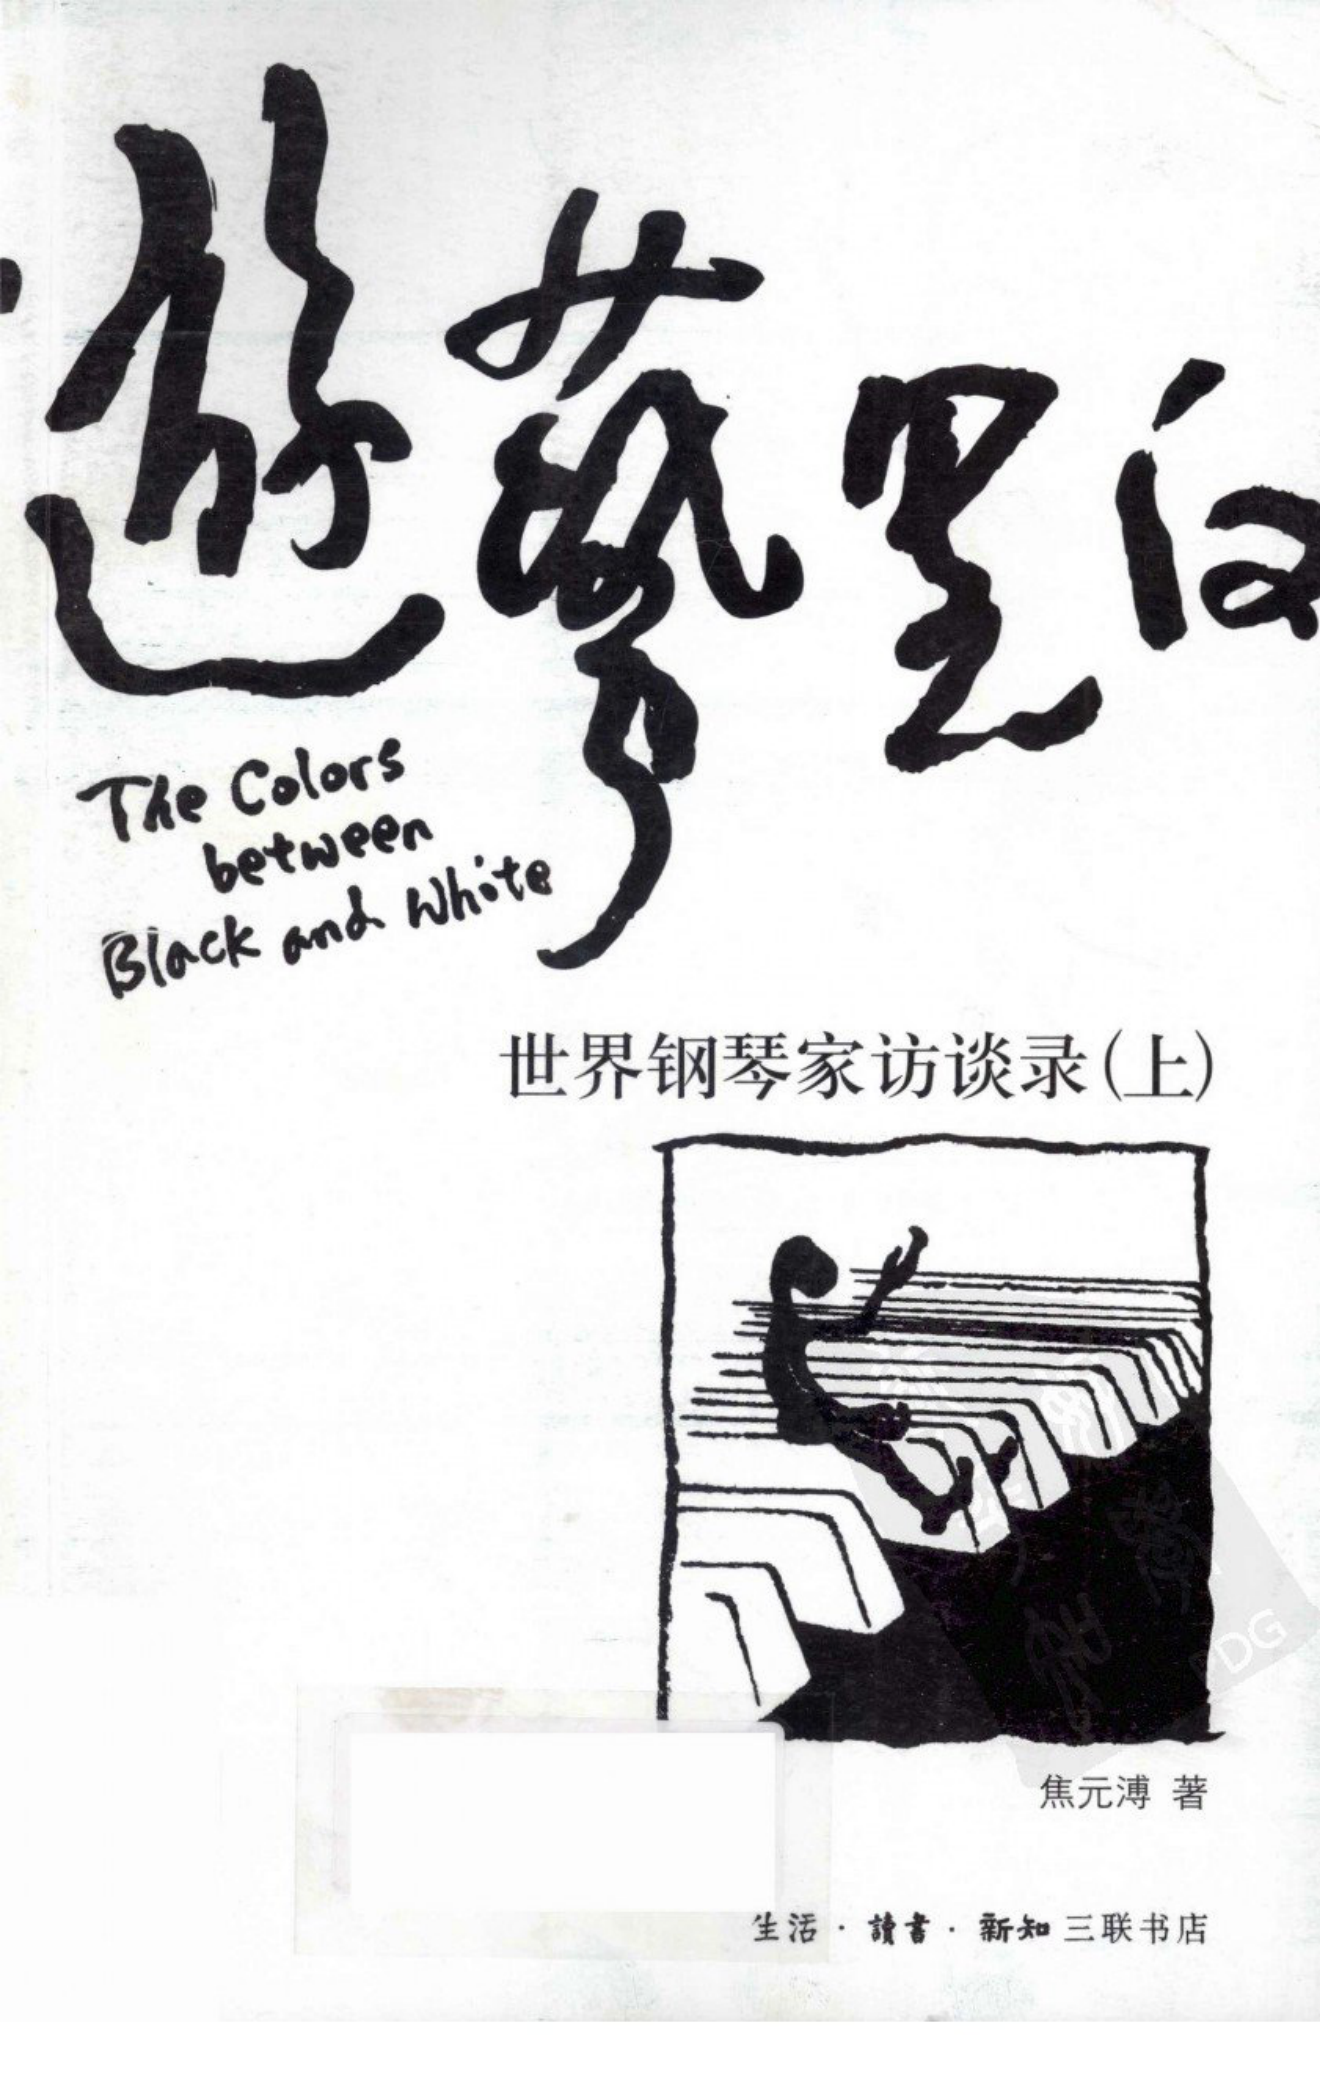 遊藝黑白
The Colors
between
Black and White
世界钢琴家访谈录(上)
PDG
焦元溥 著
生活·讀書·新知三联书店